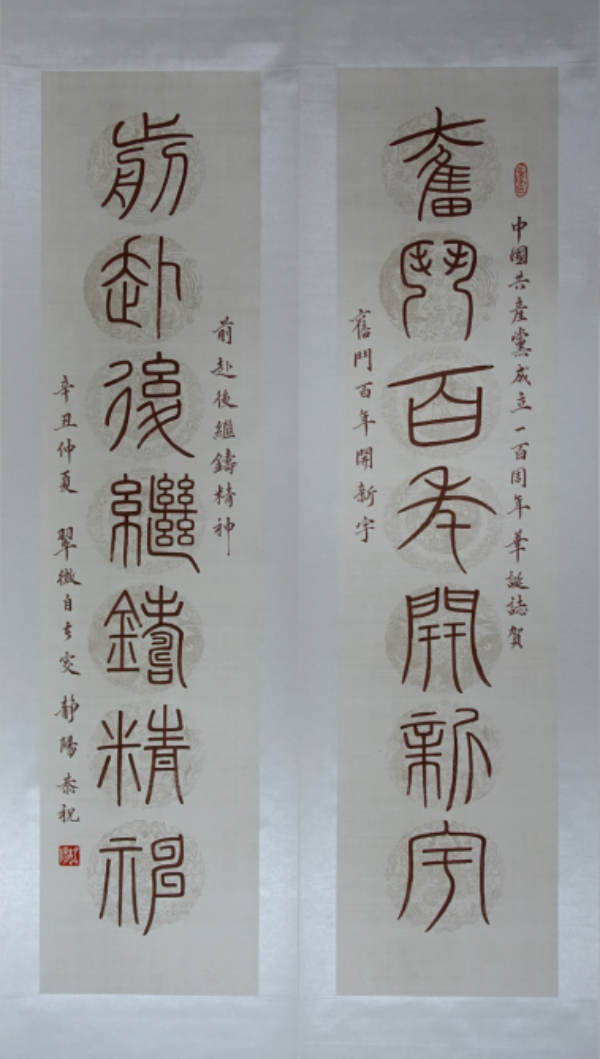 中國共產黨成立一百周年華誕誌賀
奮鬥百年開新宇
奮鬥百年開新宇
前赴後繼鑄精神
前赴後繼鑄精神
辛丑仲夏 翠微自叟 靜陽恭祝